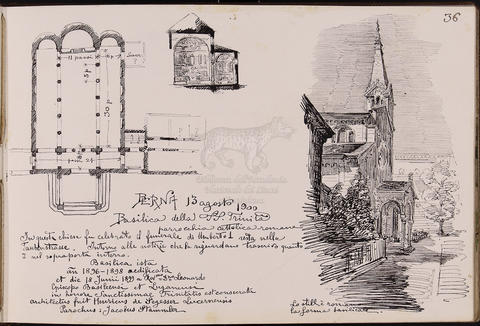 36
11 passi
5 p
30 p
BERNA 13 agosto 1900
Basilica della SS Trinità
parrocchia cattolica romana
In questa chiesa fu celebrato il funerale di Umberto I. resta nella
Taubenstrasse. Intorno alle notizie che la riguardano trascrivo quanto
è nel sopraporta interno.
Basilica ista
an 1896-1898 aedificata
et die 18 Junii 1899 a Rev Dr Leonardo
Episcopo Basileensi et Luganensi
in honore Sanctissimae Trinitatis est consecrata
architectus fuit Henricus de Segesser Lucernensis
Parochus: Jacobus Stammler
Lo stile è romanico
la forma basilicale